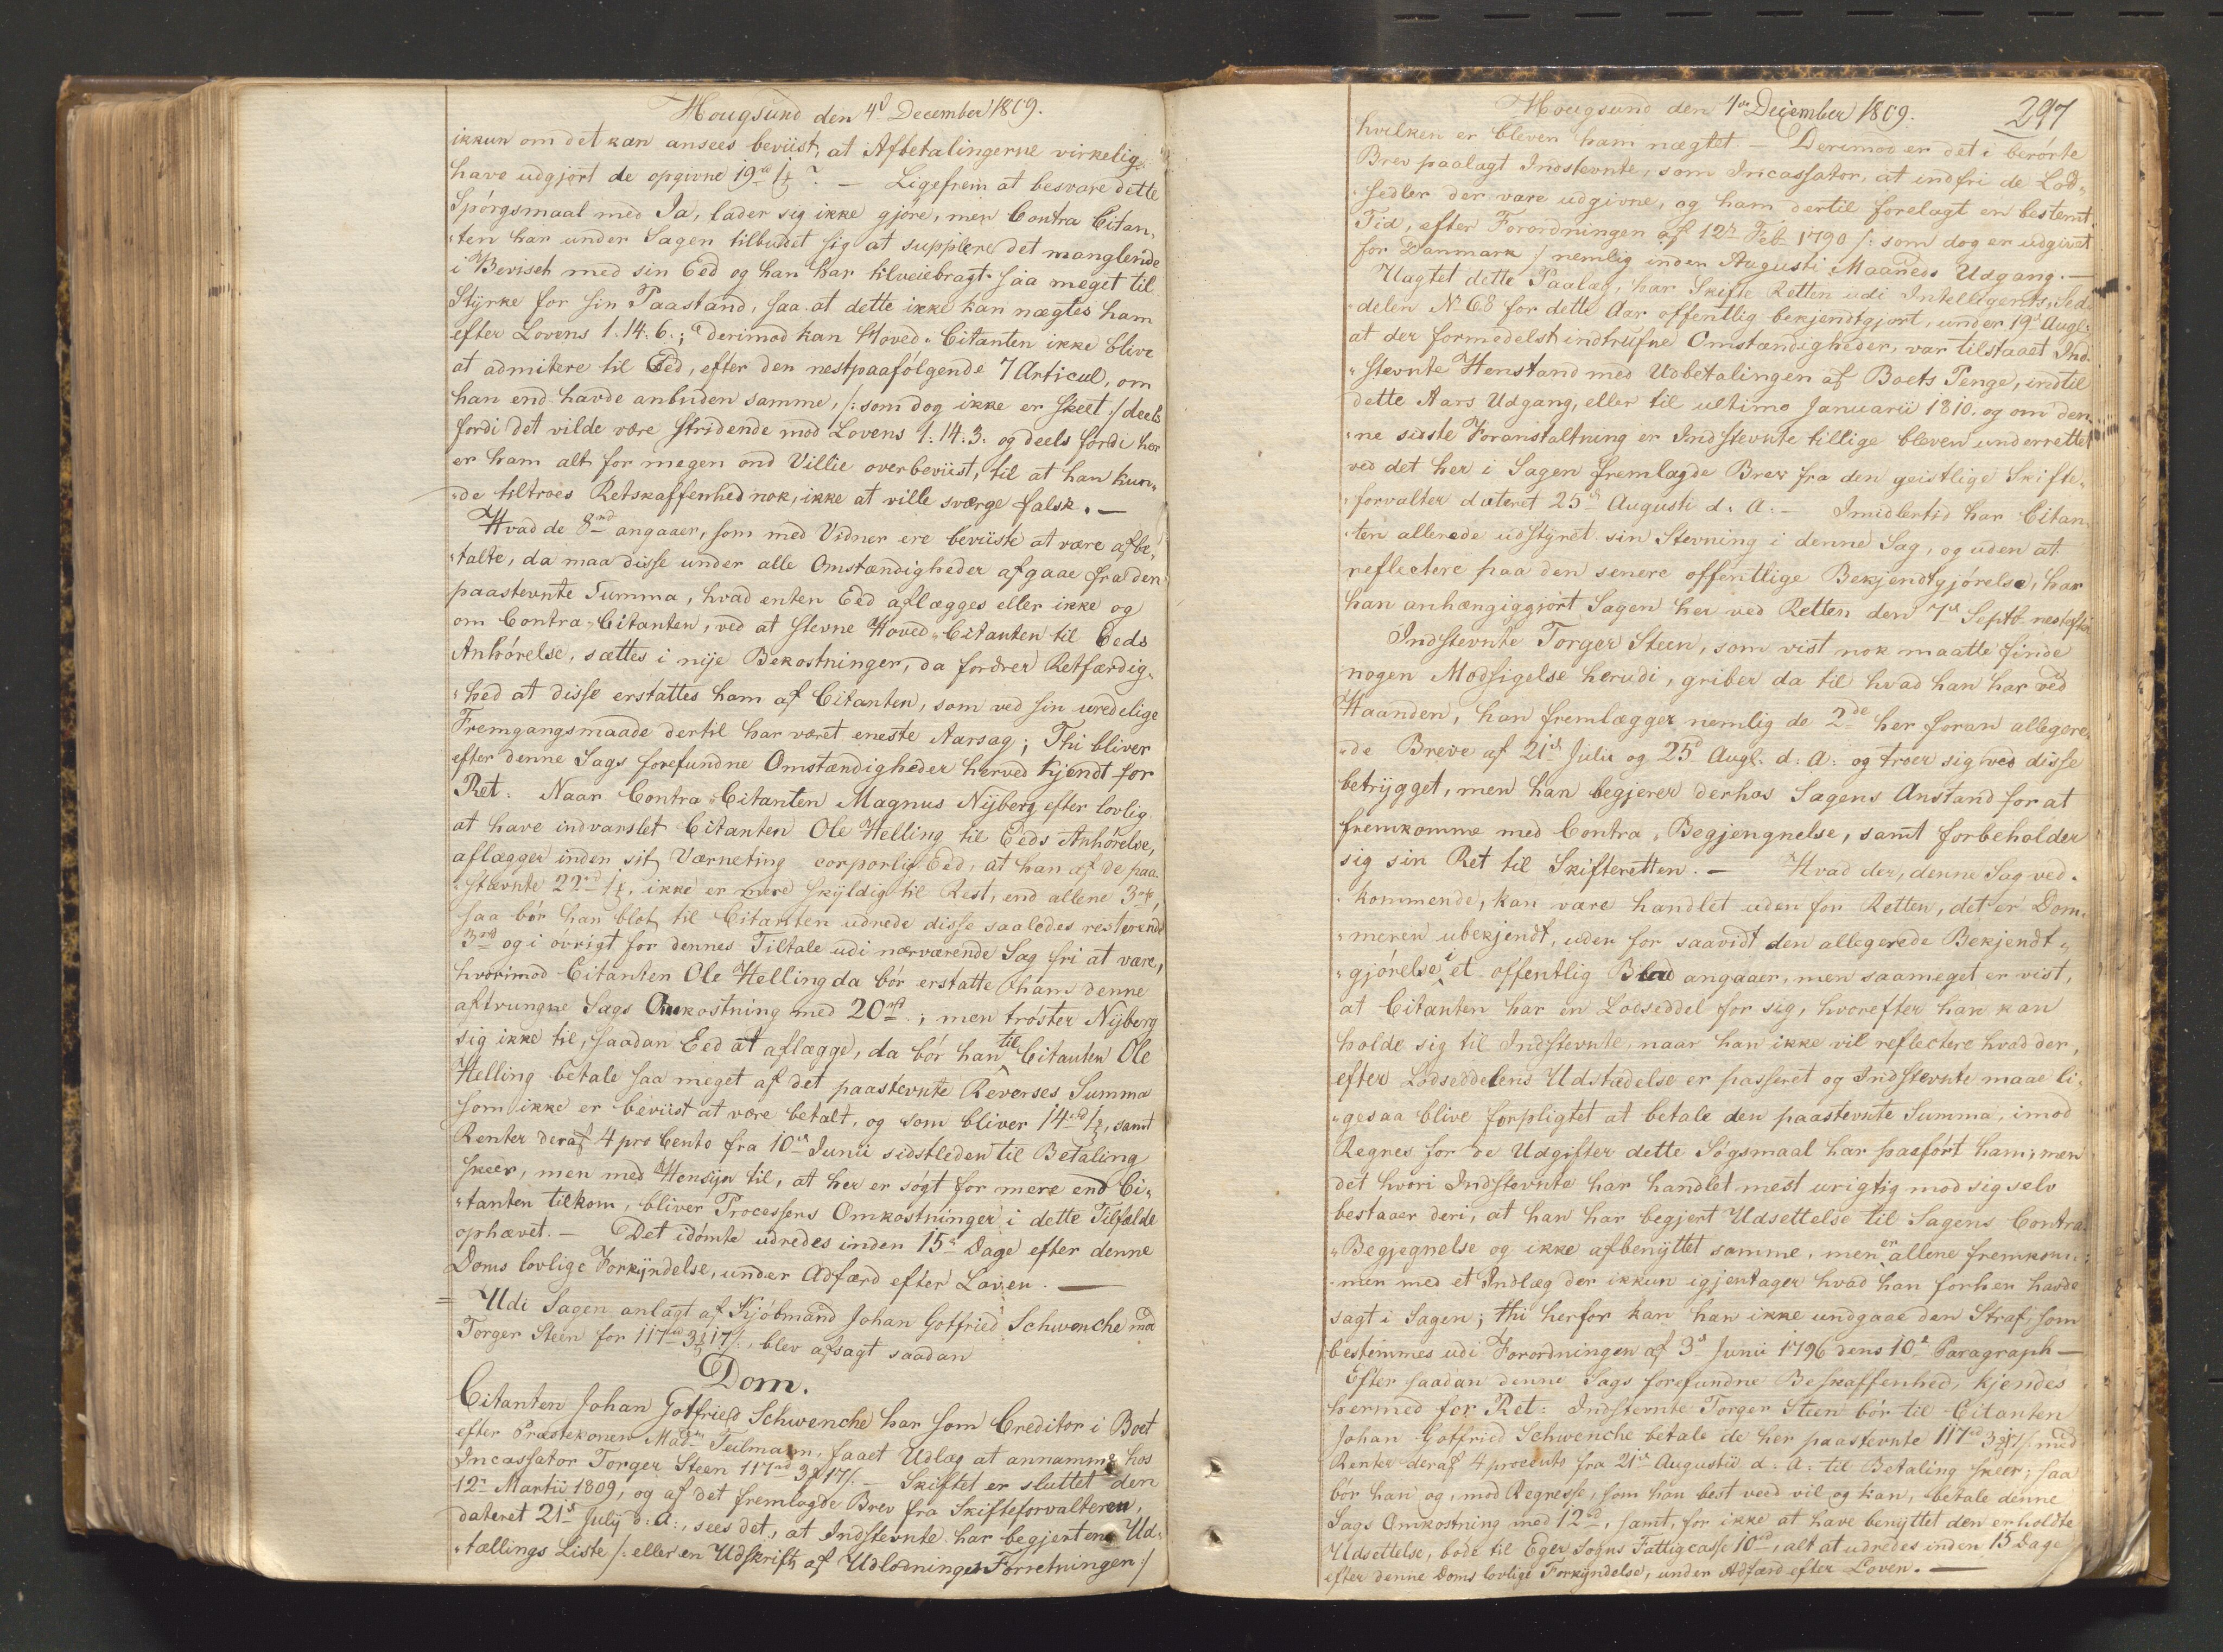 Hougsund den 4d December 1809.
ikkun om det kan ansees beviist, at Afbetalingerne virkelig
have udgjort de opgivne 19rd ½? — Ligefrem at besvare dette
Spörgsmaal med Ja, lader sig ikke gjöre, men Contra Citan„
„ten har under Sagen tilbudet sig at supplere det manglende
i Beviset med sin Eed og han har tilveiebragt saa meget til
Styrke for sin Paastand, saa at dette ikke kan nægtes ham
efter Lovens 1. 14. 6.; derimod kan Hoved-Citanten ikke blive
at admitere til Eed, efter den nestpaafölgende 7 Articul, om
han end havde anbuden samme, /: som dog ikke er skeet :/ deels
fordi det vilde være stridende mod Lovens 1. 14. 3. og deels fordi her
er ham alt for megen ond Villie overbeviist, til at han kun„
„de tiltroes Retskaffenhed nok, ikke at ville sværge falsk. —
Hvad de 8rd angaaer, som med Vidner ere beviiste at være afbe„
„talte, da maa disse under alle Omstændigheder afgaae fra den
paastevnte Summa, hvad enten Eed aflægges eller ikke og
om Contra-Citanten, ved at stevne Hoved-Citanten til Eeds
Anhörelse, sættes i nye Bekostninger, da fordrer Retfærdig„
„hed at disse erstattes ham af Citanten, som ved sin uredelige
Fremgangsmaade dertil har været eneste Aarsag; Thi bliver
efter denne Sags forefundne Omstændigheder herved kjendt for
Ret: Naar Contra-Citanten Magnus Nyberg efter lovlig
at have indvarslet Citanten Ole Helling til Eeds Anhörelse,
aflægger inden sit Værneting corporlig Eed, at han af de paa„
„stævnte 22rd ½, ikke er mere skyldig til Rest, end allene 3rd,
saa bör han blot til Citanten udrede disse saaledes resterende
3rd og i övrigt for dennes Tiltale udi nærværende Sag fri at være,
hvorimod Citanten Ole Helling da bör erstatte ham denne
aftvungne Sags Omkostning med 20rd; men tröster Nyberg
sig ikke til, saadan Eed at aflægge, da bör han til Citanten Ole
Helling betale saa meget af det paastevnte Reverses Summa
som ikke er beviist at være betalt, og som bliver 14rd ½, samt
Renter deraf 4 pro Cento fra 10de Junii sidstleden til Betaling
skeer, men med Hensyn til, at her er sögt for mere end Ci„
„tanten tilkom, bliver Processens Omkostninger i dette Tilfælde
ophævet. — Det idömte udredes inden 15n Dage efter denne
Doms lovlige Forkyndelse, under Adfærd efter Loven. —
= Udi Sagen anlagt af Kjöbmand Johan Gotfried Schwenche mod
Torger Steen for 117rd 3 17s., blev afsagt saadan
Dom.
Citanten Johan Gotfried Schwenche har som Creditor i Boet
efter Præstekonen Madme Teilmann, faaet Udlæg at annamme hos
Incassator Torger Steen 117rd 3 17s. — Skiftet er sluttet den
12te Martii 1809, og af det fremlagde Brev fra Skifteforvalteren,
dateret 21de July d: A:, sees det, at Indstevnte har begjert en Ud„
„tællings Liste /: eller en Udskrift af Udlodnings Forretningen :/
Hougsund den 4de December 1809. 297
hvilken er bleven ham nægtet — Derimod er det i berörte
Brev paalagt Indstevnte, som Incassator, at indfri de Lod„
„sedler der vare udgivne, og ham dertil forelagt en bestemt
Tid, efter Forordningen af 12te Feb. 1790 /: som dog er udgivet
for Danmark :/ nemlig inden Augusti Maaneds Udgang. —
Uagtet dette Paalæg, har Skifte Retten udi Intelligents-Sed„
„delen No 68 for dette Aar offentlig bekjendtgjort, under 19de Augs.
at der formedelst indtrufne Omstændigheder, var tilstaaet Ind„
„stevnte Henstand med Udbetalingen af Boets Penge, indtil
dette Aars Udgang, eller til ultimo Januarii 1810. og om den„
„ne sidste Foranstaltning er Indstevnte tillige bleven underrettet
ved det her i Sagen fremlagde Brev fra den geistlige Skifte„
„forvalter dateret 25de Augusti d: A: — Imidlertid har Citan„
„ten allerede udstyret sin Stevning i denne Sag, og uden at
reflectere paa den senere offentlige Bekjendtgjörelse, har
han anhængiggjort Sagen her ved Retten den 7de Septb. nestefter
Indstevnte Torger Steen, som vist nok maatte finde
nogen Modsigelse herudi, griber da til hvad han har ved
Haanden, han fremlægger nemlig de 2de her foran allegere„
„de Breve af 21de Julii og 25d Augs. d: A: og troer sig ved disse
betrygget, men han begjerer derhos Sagens Anstand for at
fremkomme med Contra-Begjengnelse, samt forbeholder
sig sin Ret til Skifteretten. — Hvad der, denne Sag ved„
„kommende, kan være handlet uden for Retten, det er Dom„
„meren ubekjendt, uden for saavidt den allegerede Bekjendt„
„gjörelse i et offentlig Blad angaaer, men saameget er vist,
at Citanten har en Lodseddel for sig, hvorefter han kan
holde sig til Indstevnte, naar han ikke vil reflectere hvad der,
efter Lodseddelens Udstædelse er passeret og Indstevnte maae li„
„gesaa blive forpligtet at betale den paastevnte Summa, imod
Regres for de Udgifter dette Sögsmaal har paafört ham; men
det hvori Indstevnte har handlet mest urigtig mod sig selv
bestaaer deri, at han har begjert Udsettelse til Sagens Contra„
„Begjegnelse og ikke afbenyttet samme, men er allene fremkom„
„men med et Indlæg der ikkun igjentager hvad han forhen havde
sagt i Sagen; thi herfor kan han ikke undgaae den Straf, som
bestemmes udi Forordningen af 3de Junii 1796 dens 10de Paragraph —
Efter saadan denne Sags forefundne Beskaffenhed, kjendes
hermed for Ret: Indstevnte Torger Steen bör til Citanten
Johan Gotfried Schwenche betale de her paastevnte 117rd 3 17s. med
Renter deraf 4 procento fra 21de Augustii d: A: til Betaling skeer; saa
bör han og, mod Regresse, som han best veed vil og kan, betale denne
Sags Omkostning med 12rd, samt, for ikke at have benyttet den erholdte
Udsettelse, bode til Eger Sogns Fattigcasse 10rd, alt at udredes inden 15 Dage
efter denne Doms lovlige Forkyndelse, under Adfærd efter Loven. —